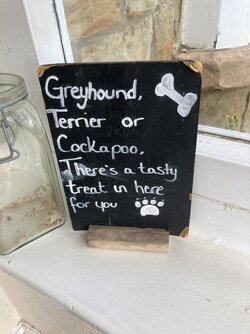 Greyhound,
Terrier or
Cockapoo,
There's a tasty
treat in here
for you